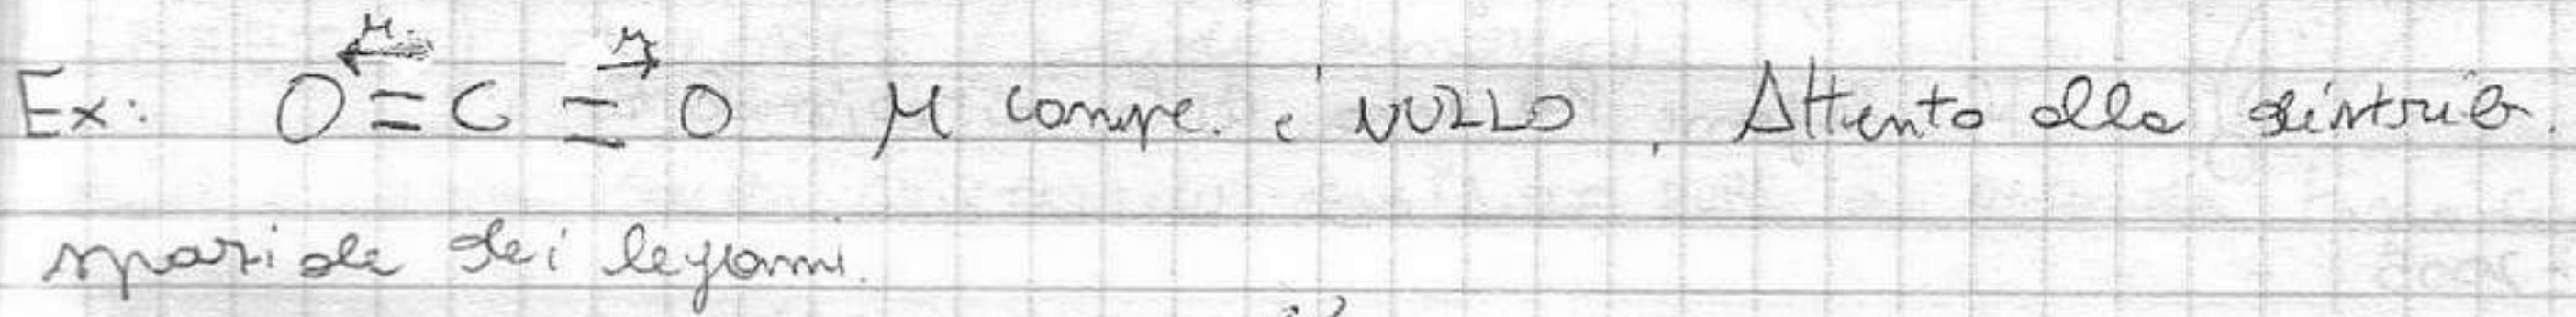 μ μ
Ex: O = C = O μ compe. è NULLO. Attento alla distrib.
spaziale dei legami.